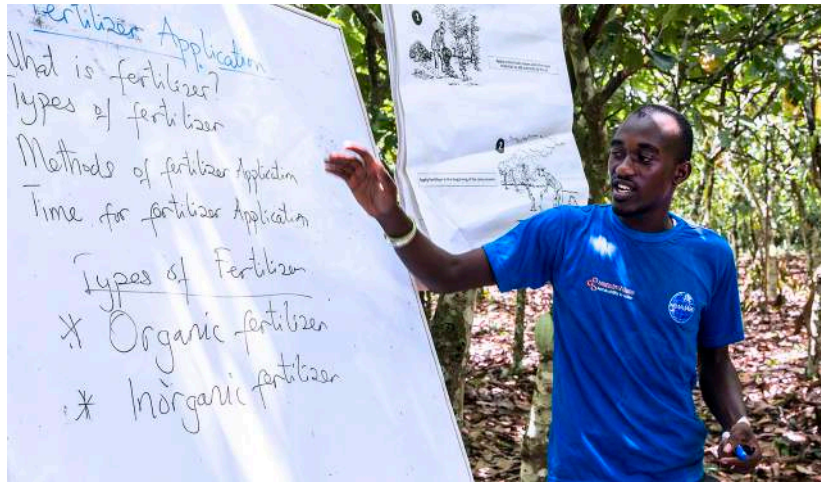 Fertilizer Application
What is fertilizer?
Types of fertilizer
Methods of fertilizer Application
Time for fertilizer Application
Types of Fertilizer
* Organic fertilizer
* Inorganic fertilizer
1
2